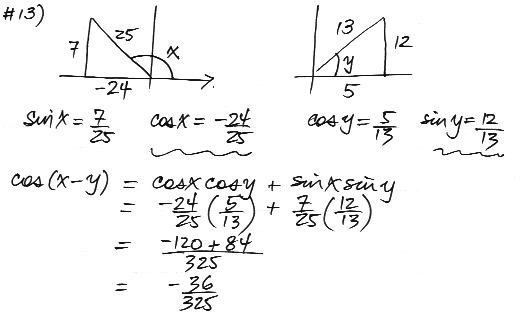 #13)
25
7
x
-24
13
12
y
5
sin x = 7/25 cos x = -24/25 cos y = 5/13 sin y = 12/13
cos(x-y) = cos x cos y + sin x sin y
= -24/25 (5/13) + 7/25 (12/13)
= -120+84/325
= -36/325